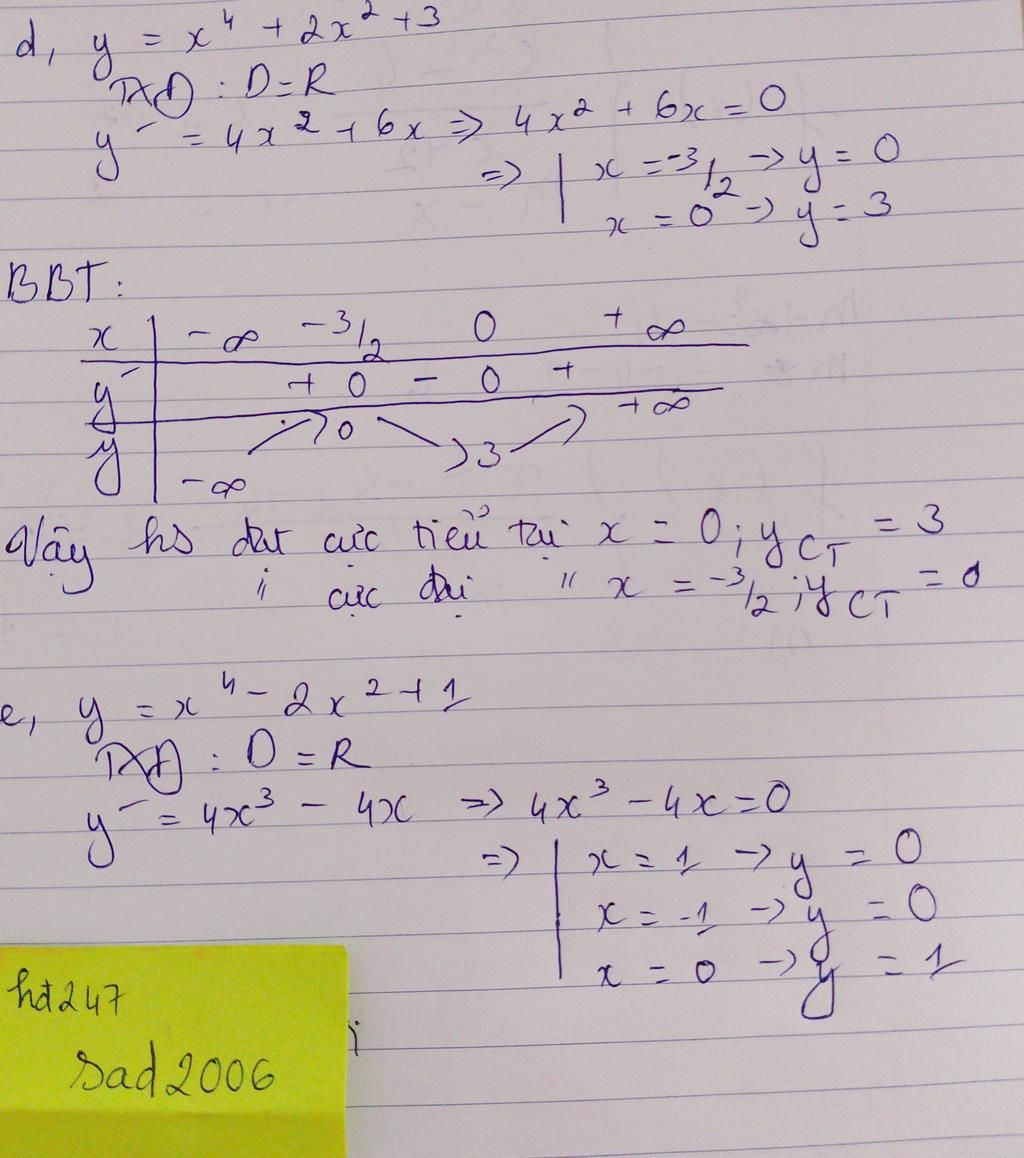 d, y = x⁴ + 2x² + 3
TXĐ : D = R
y' = 4x² + 6x => 4x² + 6x = 0
=> | x = -3/2 -> y = 0
x = 0 -> y = 3
BBT:
x | -∞ -3/2 0 +∞
y' | + 0 - 0 +
y | -∞ 0 3 +∞
Vậy hs đạt cực tiểu tại x = 0; yCT = 3
" cực đại " x = -3/2; yCT = 0
e, y = x⁴ - 2x² + 1
TXĐ : D = R
y' = 4x³ - 4x => 4x³ - 4x = 0
=> | x = 1 -> y = 0
x = -1 -> y = 0
x = 0 -> y = 1
hđ247
Sad2006